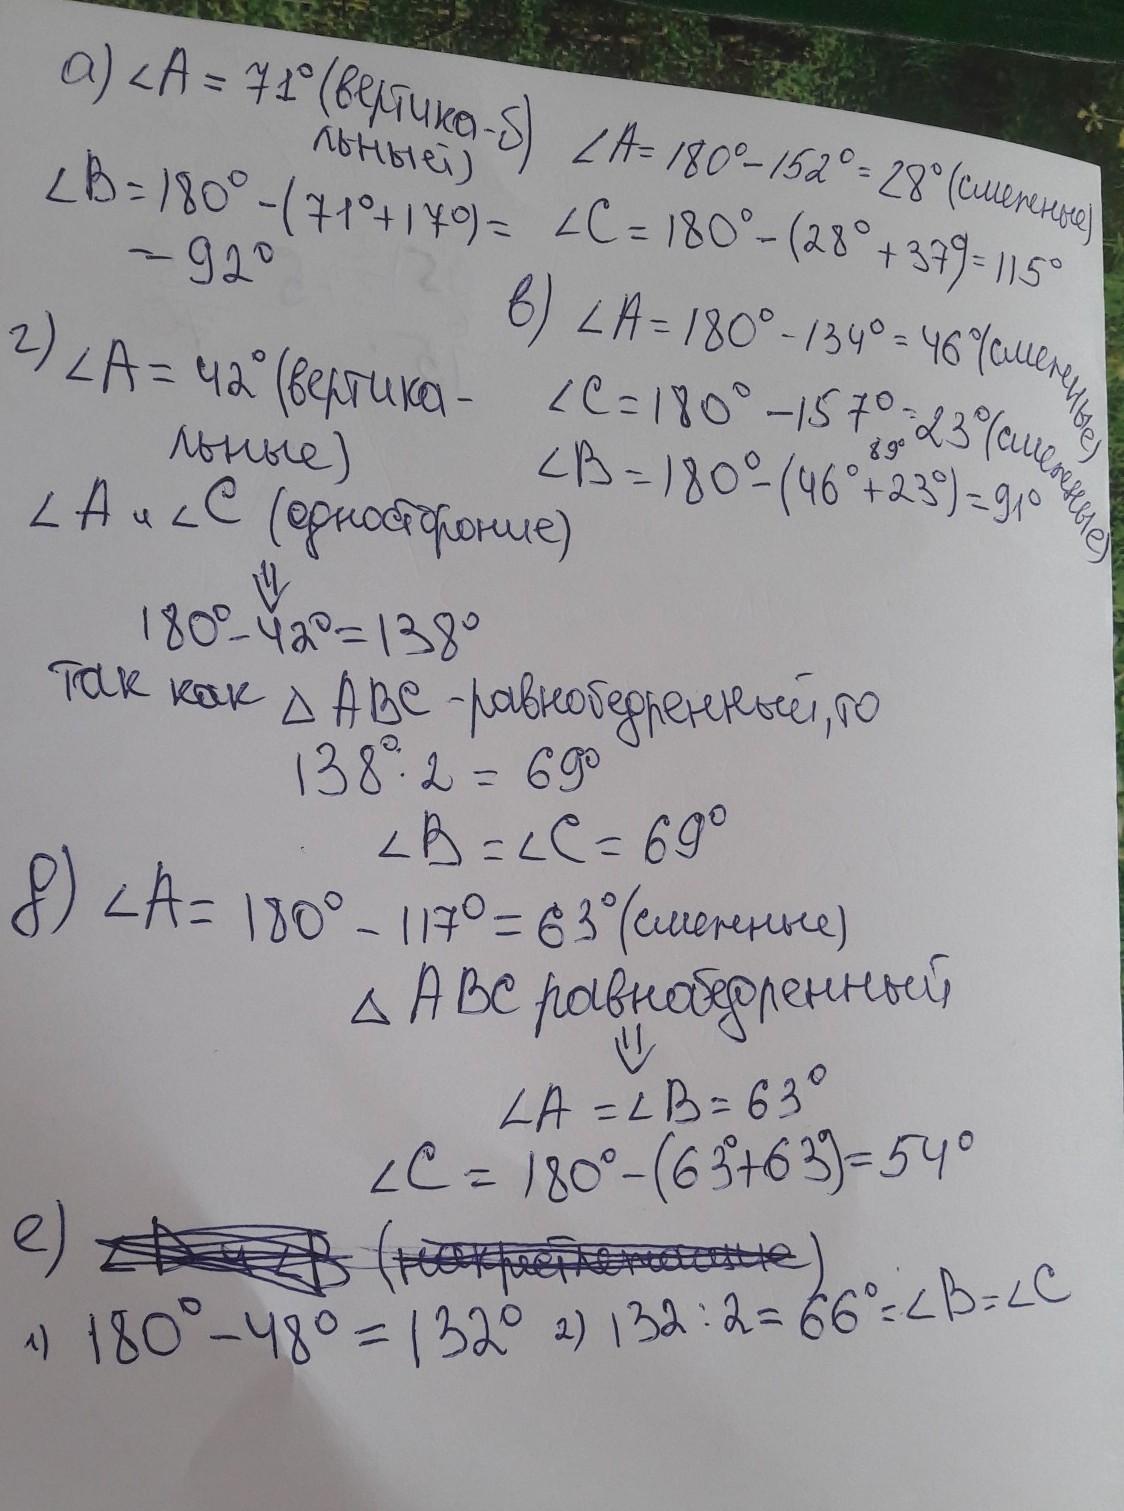 а) ∠A = 71° (вертика-
льный)
∠B = 180° - (71° + 17°) =
= 92°
б) ∠A = 180° - 152° = 28° (смежные)
∠C = 180° - (28° + 37°) = 115°
в) ∠A = 180° - 134° = 46° (смежные)
∠C = 180° - 157° = 23° (смежные)
89°
∠B = 180° - (46° + 23°) = 91°
г) ∠A = 42° (вертика-
льные)
∠A и ∠C (односторонние)
⇓
180° - 42° = 138°
так как △ ABC - равнобедренный, то
138° : 2 = 69°
∠B = ∠C = 69°
д) ∠A = 180° - 117° = 63° (смежные)
△ ABC равнобедренный
⇓
∠A = ∠B = 63°
∠C = 180° - (63° + 63°) = 54°
е)
1) 180° - 48° = 132° 2) 132 : 2 = 66° = ∠B = ∠C